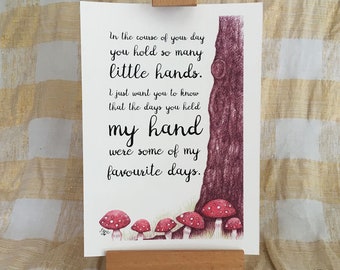 In the course of your day
you hold so many
little hands.
I just want you to know
that the days you held
my hand
were some of my
favourite days.